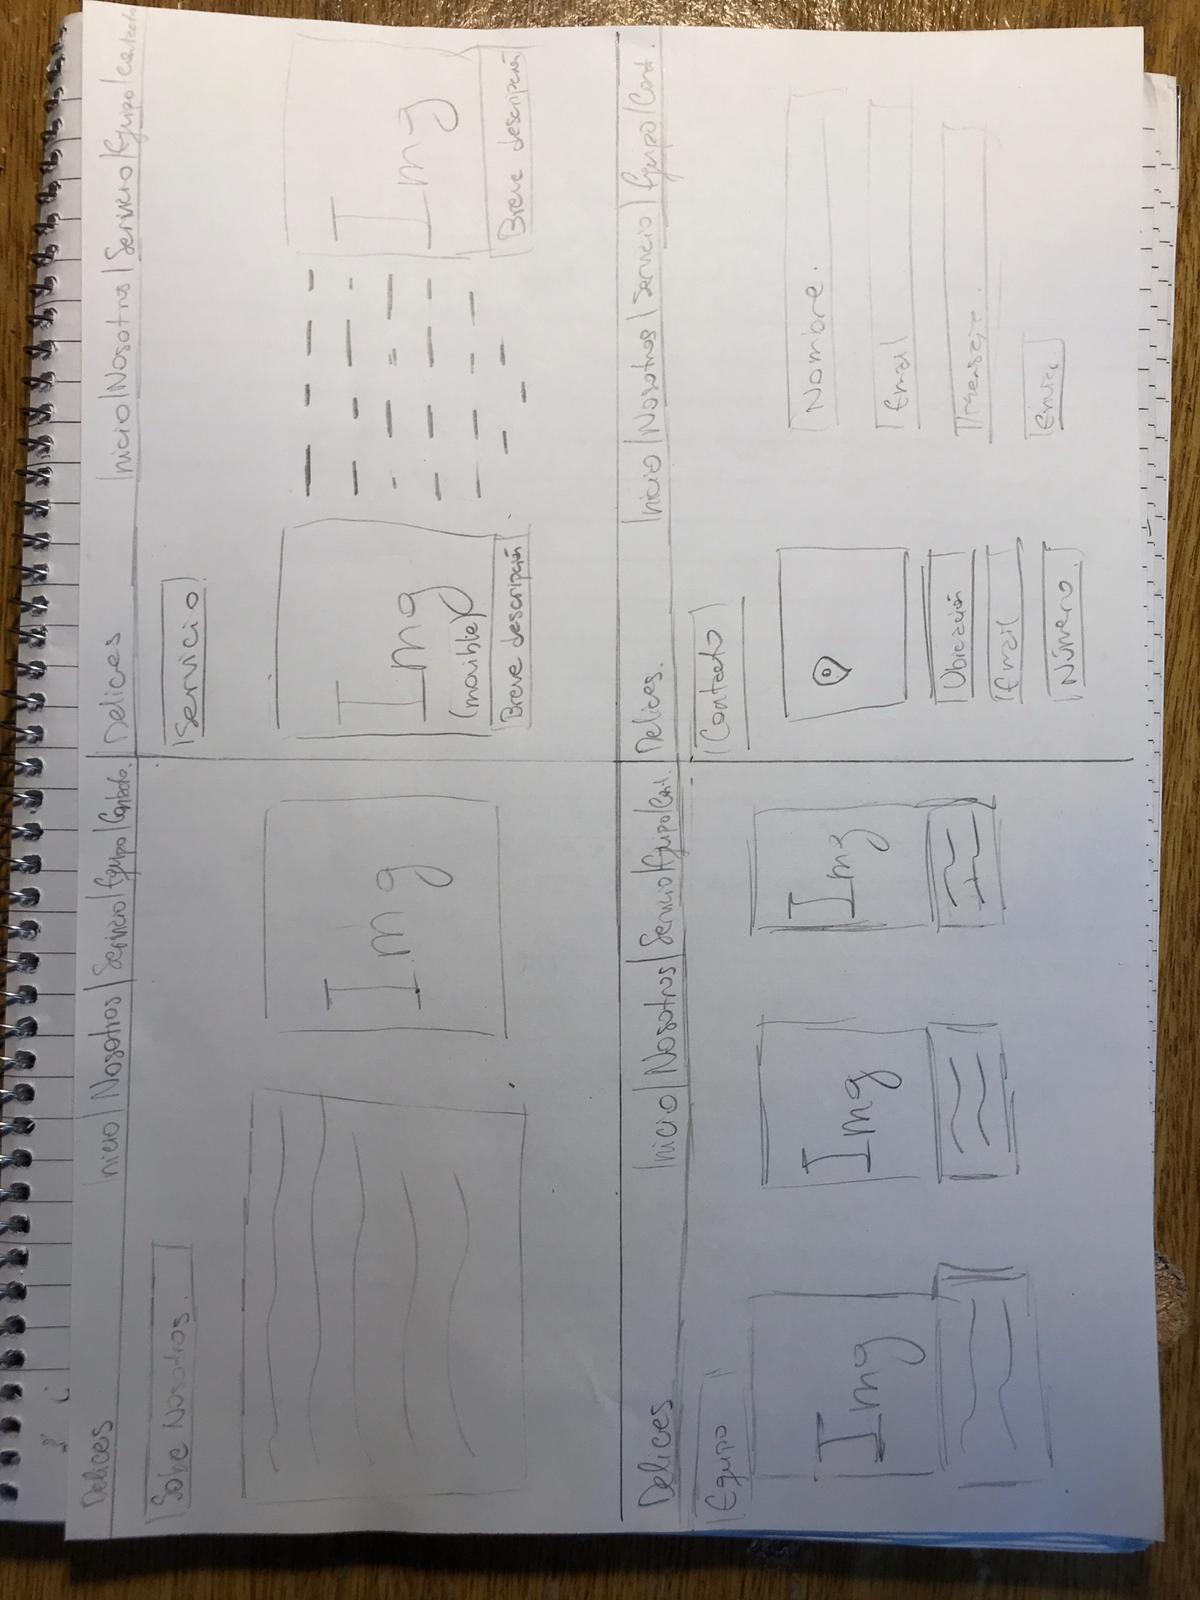 Delices Inicio | Nosotros | Servicio | Equipo | Contacto.
Sobe Nosotros.
Img
Delices Inicio | Nosotros | Servicio | Equipo | Contacto
Servicio
Img
(movible)
Breve descripción
Img
Breve descripción
Delices Inicio | Nosotros | Servicio | Equipo | Cont.
Equipo
Img
Img
Img
Delices. Inicio | Nosotros | Servicio | Equipo | Cont.
Contacto
Ubicación
Email
Número.
Nombre.
Email
Mensaje.
Enviar